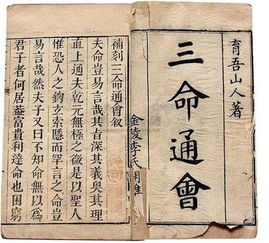 育吾山人著
三命通會
金陵李氏
補刻三命通會敘
夫命豈易言哉其旨深其義奧其理
直上通夫乾元無極之後是以聖人
惟恐人之鈎玄索隱而罕言之命豈
易言哉然夫子又曰不知命無以為
君子者何居葢富貴利達命也困窮